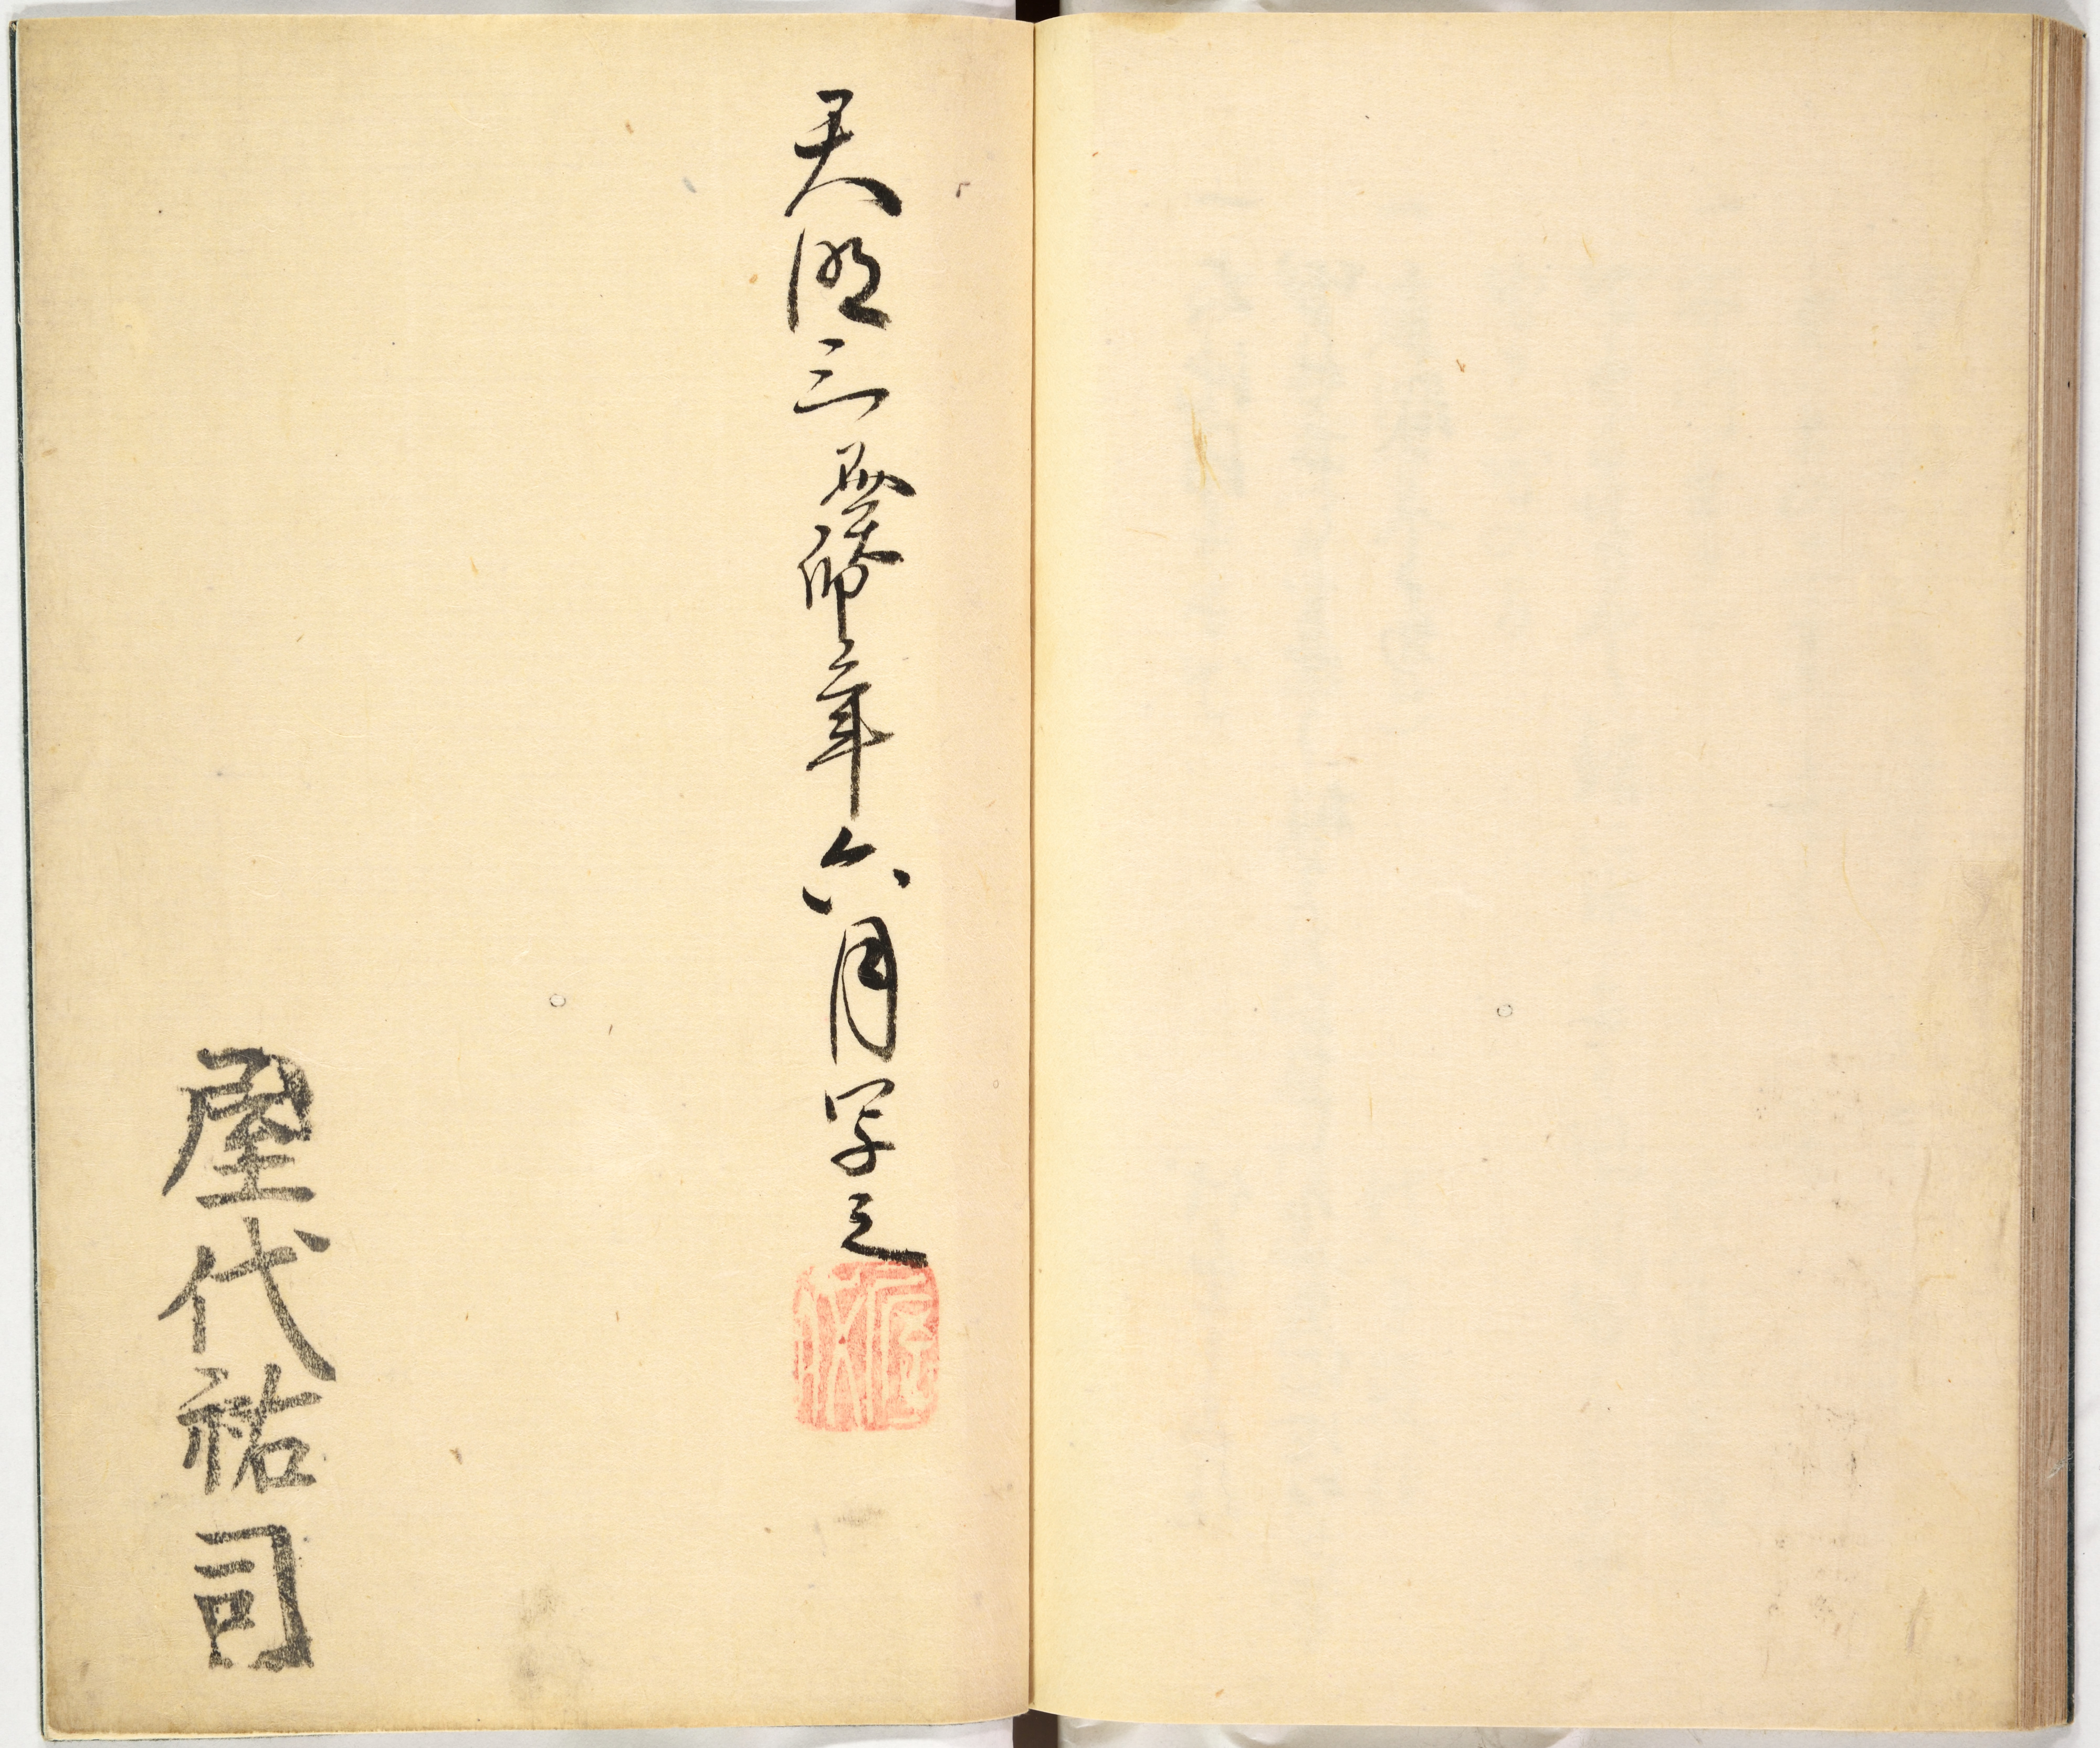 天明三癸卯年六月写之
屋代祐司